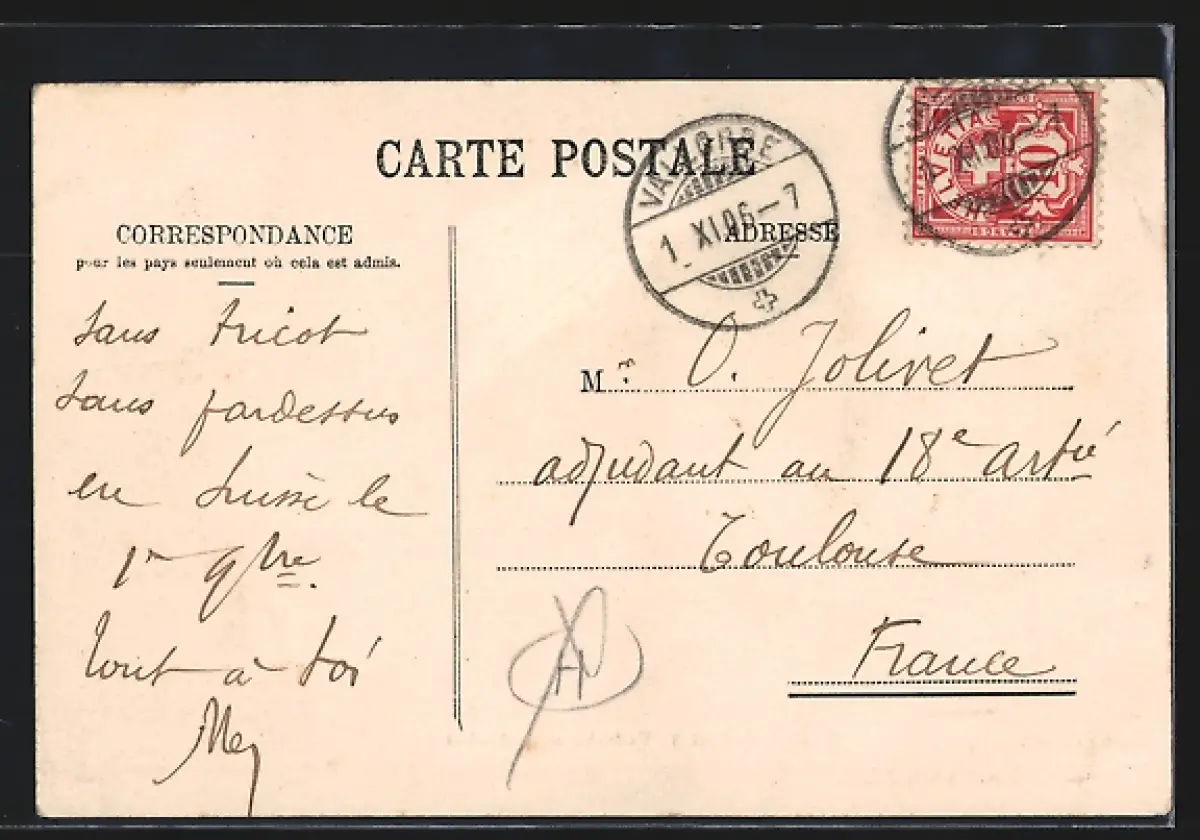 CARTE POSTALE
CORRESPONDANCE
pour les pays seulement où cela est admis.
Sans tricot
Sans pardessus
en Suisse le
1er 9bre.
tout à toi
ADRESSE
Mr O. Jolivet
adjudant au 18e artie
Toulouse
France
VALLORBE
1. XI.06–7
HELVETIA
10
XI.06